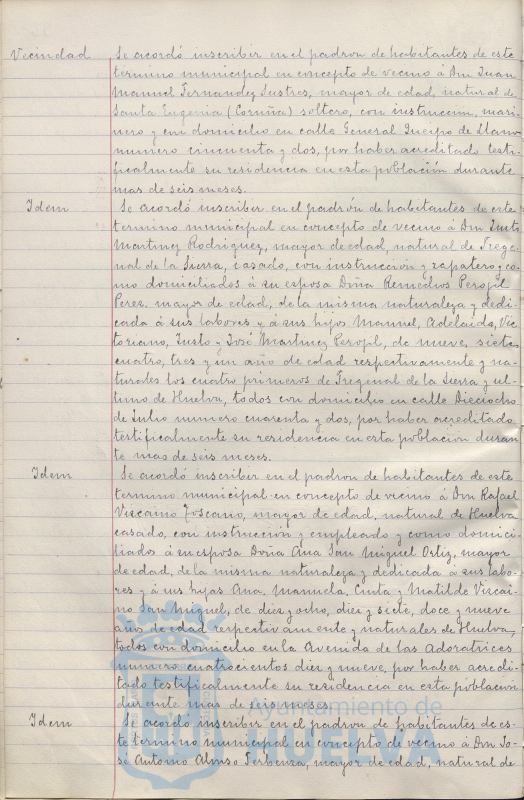 Vecindad Se acordó inscribir en el padron de habitantes de este
termino municipal en concepto de vecino á Don Juan
Manuel Fernandez Sustres, mayor de edad, natural de
Santa Eugenia (Coruña) soltero, con instruccion, mari-
nero y con domicilio en calle General Queipo de Llano
numero cincuenta y dos, por haber acreditado testi-
ficalmente su residencia en esta poblacion durante
mas de seis meses.
Idem Se acordó inscribir en el padrón de habitantes de este
termino municipal en concepto de vecino á Don Justo
Martinez Rodriguez, mayor de edad, natural de Frege-
nal de la Sierra, casado, con instruccion y zapatero y co-
mo domiciliados á su esposa Doña Remedios Peropil
Perez. mayor de edad, de la misma naturaleza y dedi-
cada á sus labores y á sus hijos Manuel, Adelaida, Vic-
toriano, Justo y José Martinez Peropil, de nueve, siete,
cuatro, tres y un año de edad respectivamente y na-
turales los cuatro primeros de Fregenal de la Sierra y ul-
timo de Huelva, todos con domicilio en calle Dieciocho
de Julio numero cuarenta y dos, por haber acreditado
testificalmente su residencia en esta poblacion duran-
te mas de seis meses.
Idem Se acordó inscribir en el padron de habitantes de este
termino municipal en concepto de vecino á Don Rafael
Viscaino Toscano, mayor de edad, natural de Huelva
casado, con instruccion y empleado y como domici-
liados á su esposa Doña Ana San Miguel Ortiz, mayor
de edad, de la misma naturaleza y dedicada a sus labo-
res y á sus hijas Ana, Manuela, Cinta y Matilde Vizcai-
no San Miguel, de diez y ocho, diez y siete, doce y nueve
años de edad respectivamente y naturales de Huelva,
todos con domicilio en la Avenida de las Adoratrices
numero cuatrocientos diez y nueve, por haber acredi-
tado testificalmente su residencia en esta poblacion
durante mas de seis meses.
Idem Se acordó inscribir en el padron de habitantes de es-
te termino municipal en concepto de vecino á Don Jo-
sé Antonio Alonso, mayor de edad, natural de
Ayuntamiento de
HUELVA